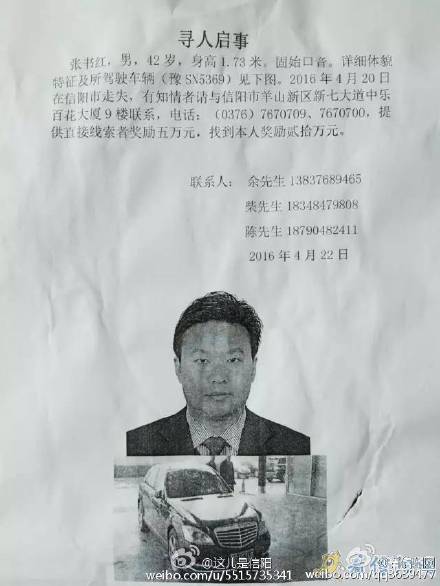 寻人启事
张书红，男，42岁，身高1.73米。固始口音。详细体貌
特征及所驾驶车辆（豫SN5369）见下图。2016年4月20日
在信阳市走失，有知情者请与信阳市羊山新区新七大道中乐
百花大厦9楼联系，电话：（0376）7670709、7670700，提
供直接线索者奖励五万元，找到本人奖励贰拾万元。
联系人：余先生 13837689465
柴先生 18348479808
陈先生 18790482411
2016年4月22日
@这儿是信阳
weibo.com/u/5515735341